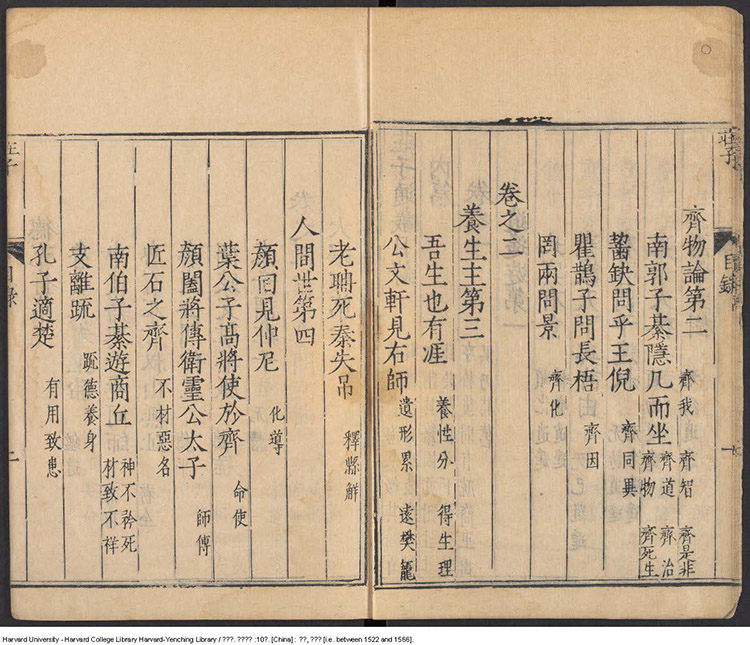 莊子
目錄
齊物論第二
南郭子綦隱几而坐 齊我 齊智 齊是非 齊物 齊道 齊治 齊死生
齧缺問乎王倪 齊同異
瞿鵲子問長梧 齊因
罔兩問景 齊化
卷之二
養生主第三
吾生也有涯 養性分 得生理
公文軒見右師 遺形累 遠樊籠
老聃死秦失吊 釋縣解
人間世第四
顏回見仲尼 化導
葉公子高將使於齊 命使
顏闔將傅衛靈公太子 師傅
匠石之齊 不材惡名
南伯子綦遊商丘 神不矜死 材致不祥
支離疏 䟽德養身
孔子適楚 有用致患
莊子
目錄
二
Harvard University - Harvard College Library Harvard-Yenching Library / ???. ???? :10?. [China] : ??, ??? [i.e. between 1522 and 1566].